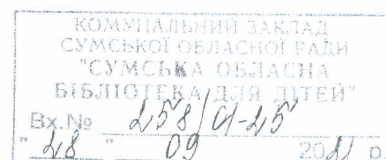 КОМУНАЛЬНИЙ ЗАКЛАД
СУМСЬКОЇ ОБЛАСНОЇ РАДИ
"СУМСЬКА ОБЛАСНА
БІБЛІОТЕКА ДЛЯ ДІТЕЙ"
Вх.№ 258/01-25
"28" 09 2021 р.